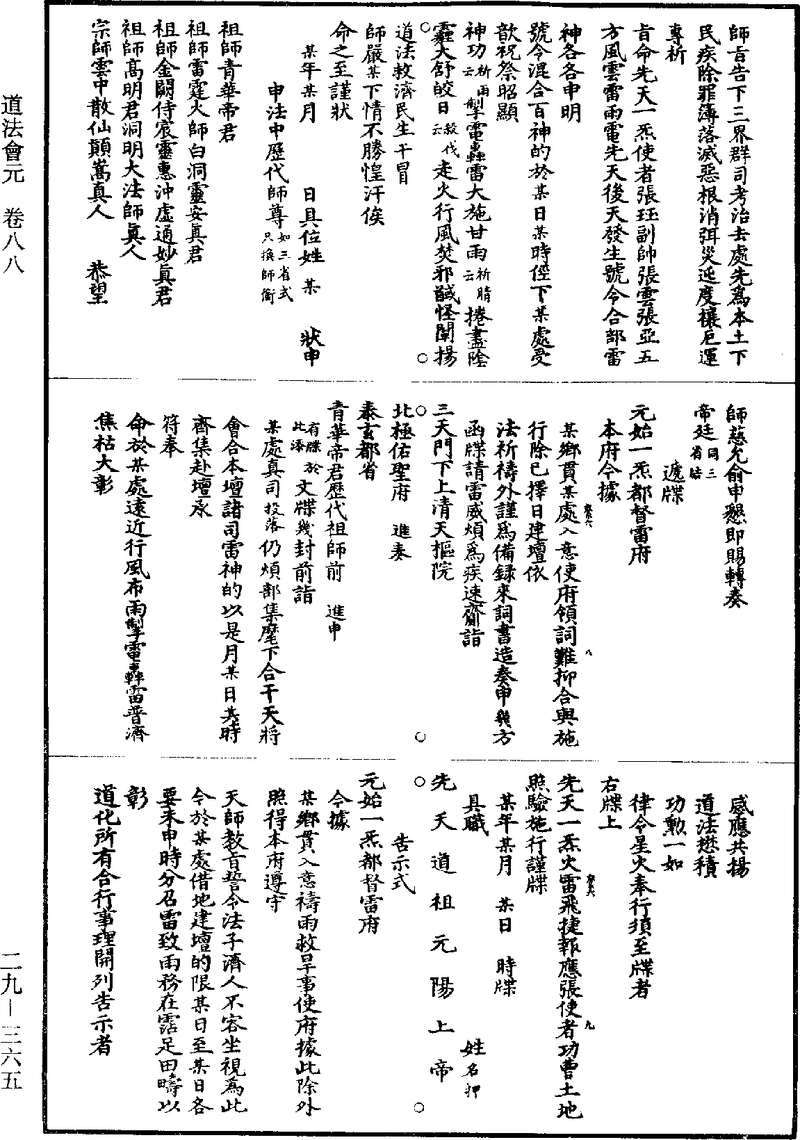 師旨告下三界群司考治去處先爲本土下
民疾除罪簿落滅惡根消弭災迍度禳厄運
專祈
旨命先天一炁使者張珏副帥張雲張亞五
方風雲雷雨電先天後天發生號令合部雷
神各各申明
號令混合百神的於某日某時徑下某處受
歆祝祭昭顯
神功祈雨云掣電轟雷大施甘雨祈晴云捲盡陰
霾大舒皎日救伐云走火行風焚邪馘怪闡揚
道法救濟民生干冒
師嚴某下情不勝惶汗俟
命之至謹狀
某年某月 日具位姓 某 狀申
申法中歷代師尊如三省式只換師銜
祖師青華帝君
祖師雷霆火師白洞靈安真君
祖師金闕侍宸靈惠沖虛通妙真君
祖師高明君洞明大法師真人
宗師雲中散仙顛嵩真人 恭望
師慈允俞申懇即賜轉奏
帝廷同三省結
遞牒
元始一炁都督雷府
本府今據
某鄉貫某處入意使府領詞難抑合與施
行除已擇日建壇依
法祈禱外謹爲備録來詞書造奏申幾方
函牒請雷威煩爲疾速齎詣
三天門下上清天樞院
北極佑聖府 進奏
泰玄都省
青華帝君歷代祖師前 進申
有牒於此添文牒幾封前詣
某處真司投落仍煩部集麾下合干天將
會合本壇諸司雷神的以是月某日某時
齊集赴壇承
符奉
命於某處遠近行風布雨掣電轟雷普濟
焦枯大彰
感應共揚
道法懋積
功勳一如
律令星火奉行須至牒者
右牒上
先天一炁火雷飛捷報應張使者功曹土地
照驗施行謹牒
某年某月 某日 時牒
具職 姓名押
先天道祖元陽上帝
告示式
元始一炁都督雷府
今據
某鄉貫入意禱雨救旱事使府據此除外
照得本府遵守
天師教旨誓令法子濟人不容坐視爲此
今於某處借地建壇的限某日至某日各
要未申時分召雷致雨務在霑足田疇以
彰
道化所有合行事理開列告示者
道法會元 卷八八
二九—三六五